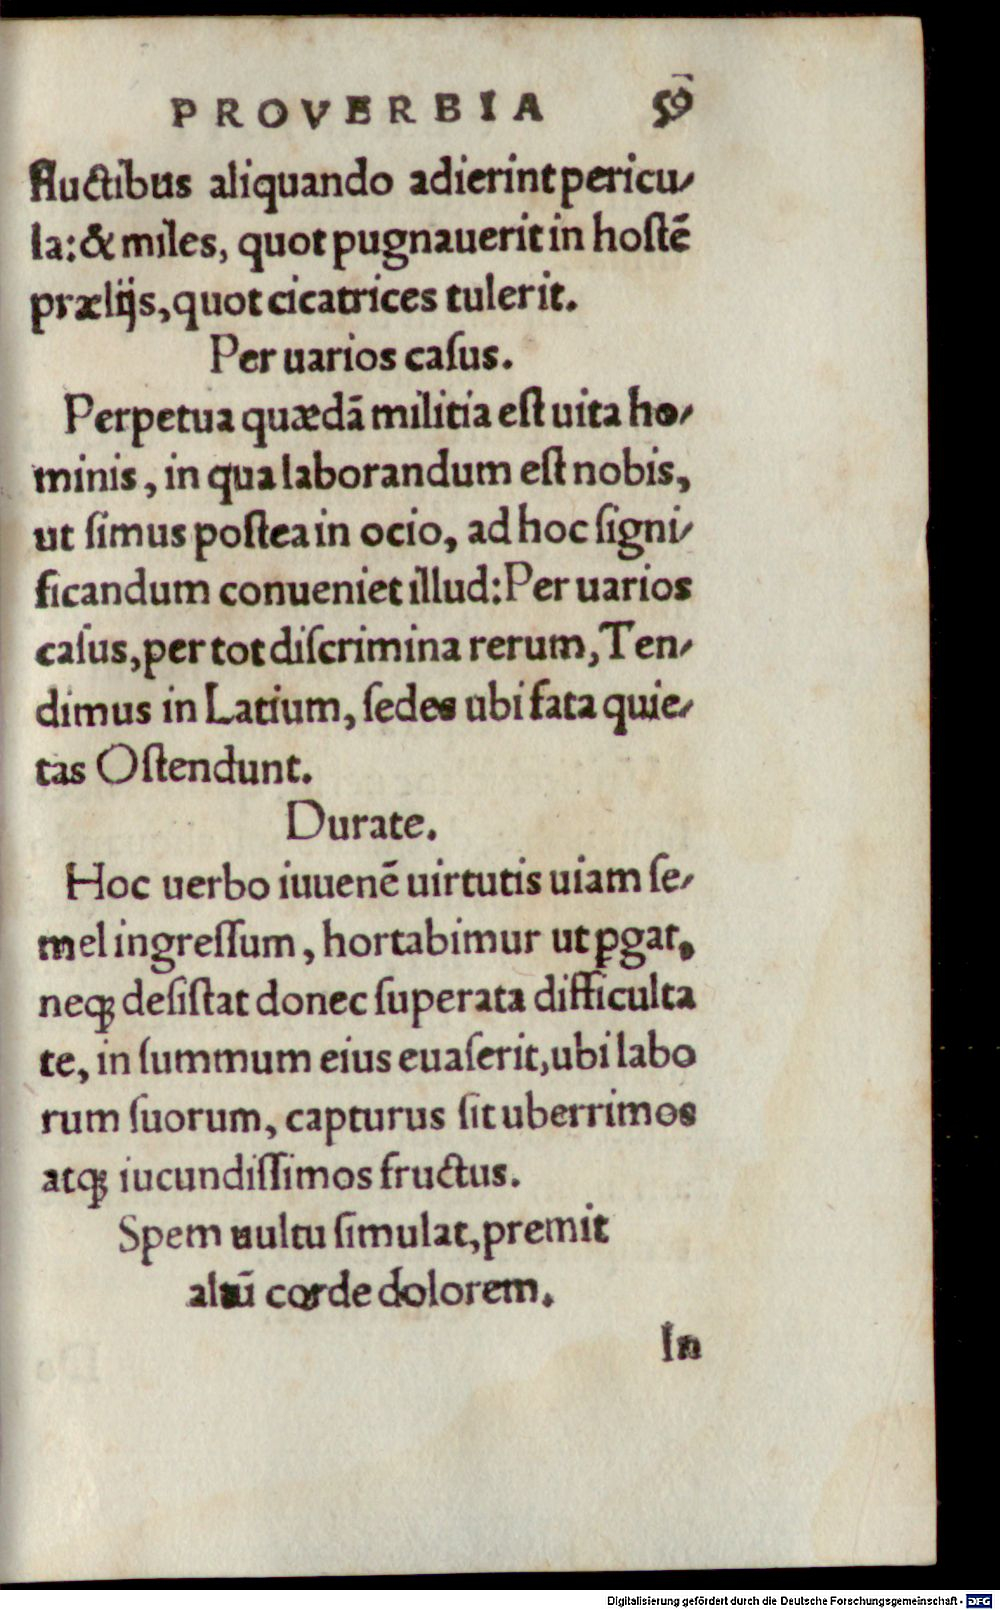 PROVERBIA 59
fluctibus aliquando adierint pericu-
la: & miles, quot pugnauerit in hostē
præliĳs, quot cicatrices tulerit.
Per uarios caſus.
Perpetua quædā militia eſt uita ho-
minis, in qua laborandum eſt nobis,
ut ſimus poſtea in ocio, ad hoc ſigni-
ficandum conueniet illud: Per uarios
caſus, per tot diſcrimina rerum, Ten-
dimus in Latium, ſedes ubi fata quie-
tas Oſtendunt.
Durate.
Hoc uerbo iuuenē uirtutis uiam ſe-
mel ingreſſum, hortabimur ut ꝑgat,
neqꝫ deſiſtat donec ſuperata difficulta
te, in ſummum eius euaſerit, ubi labo
rum ſuorum, capturus ſit uberrimos
atqꝫ iucundiſſimos fructus.
Spem uultu ſimulat, premit
altū corde dolorem.
In
Digitalisierung gefördert durch die Deutsche Forschungsgemeinschaft - DFG